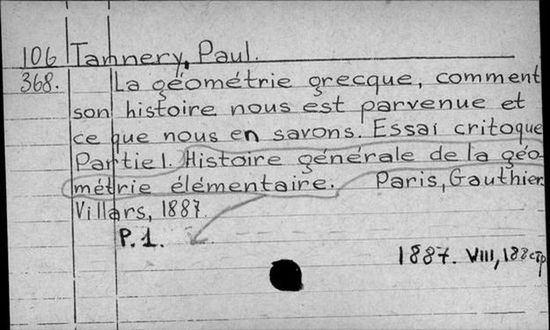 106 Tannery, Paul.
368. La géométrie grecque, comment
son histoire nous est parvenue et
ce que nous en savons. Essai critoque
Partie 1. Histoire générale de la géo-
métrie élémentaire. Paris, Gauthier
Villars, 1887.
P. 1.
1887. VIII, 188 стр